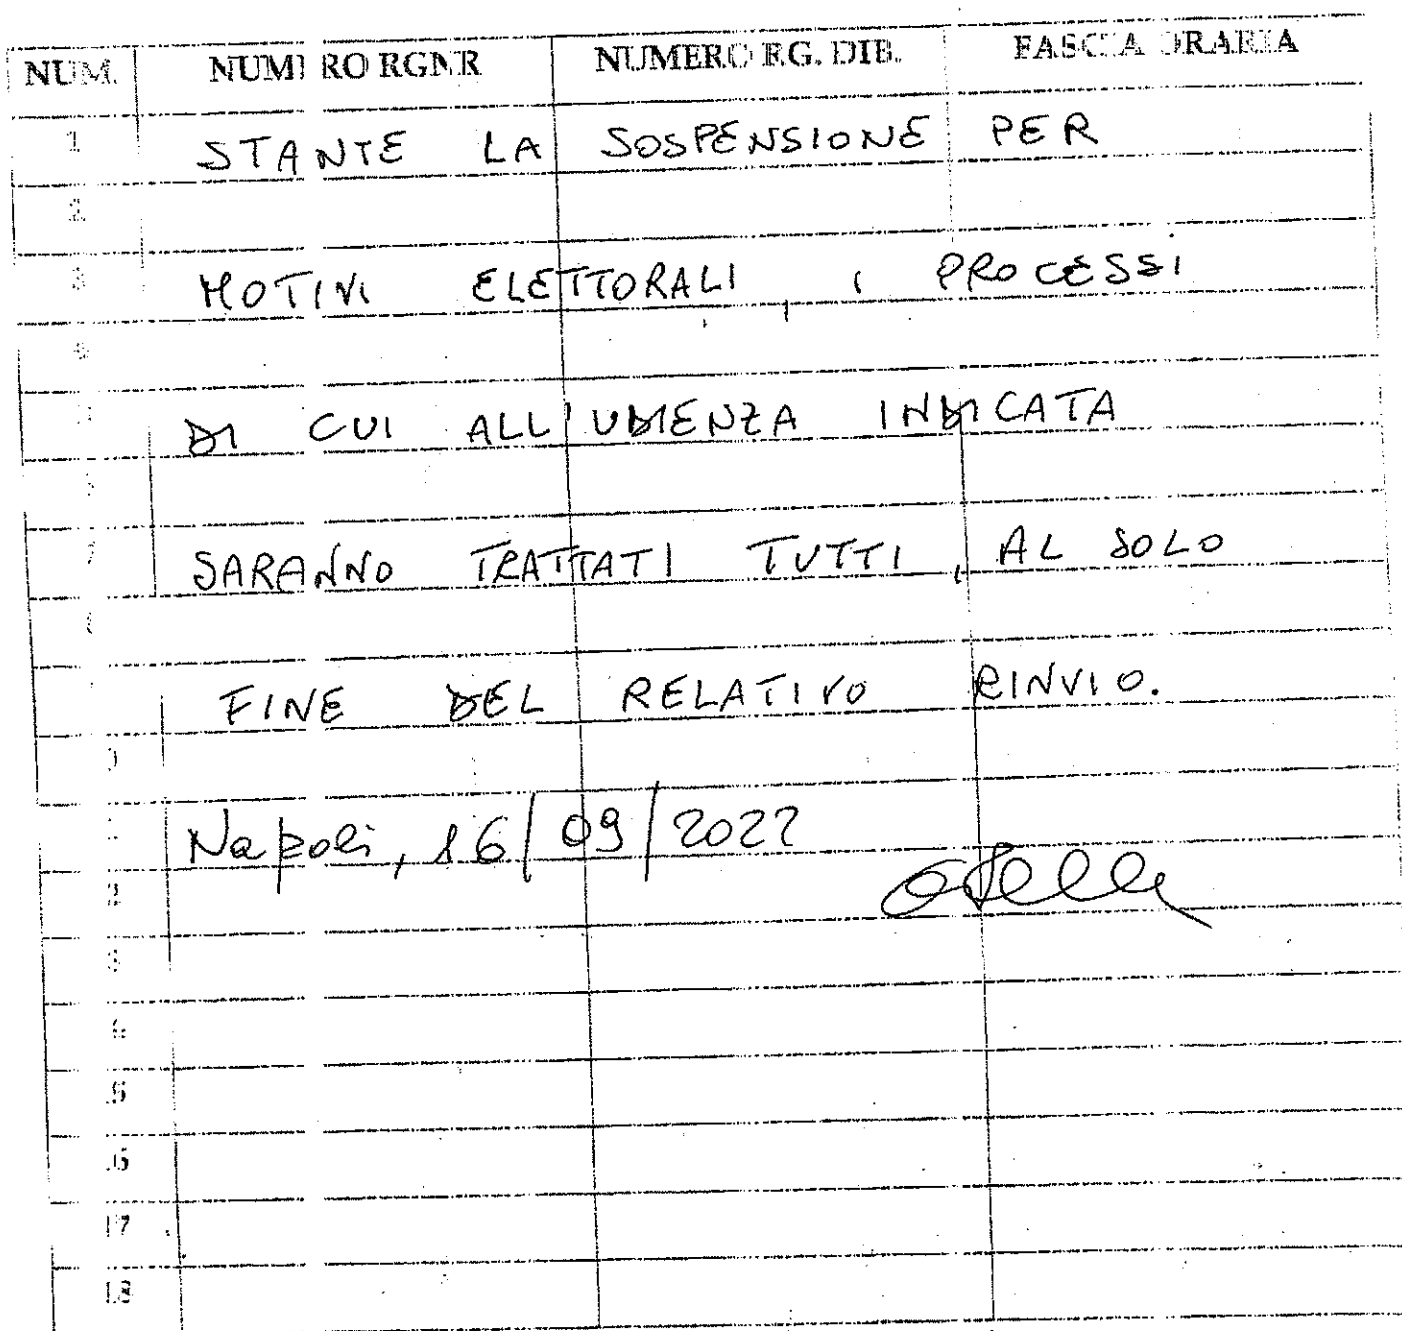 NUM. NUMERO RGNR NUMERO RG. DIB. FASCIA ORARIA
1 STANTE LA SOSPENSIONE PER
2
3 MOTIVI ELETTORALI, I PROCESSI
DI CUI ALL'UDIENZA INDICATA
7 SARANNO TRATTATI TUTTI, AL SOLO
FINE DEL RELATIVO RINVIO.
Napoli, 16/09/2022
17
18